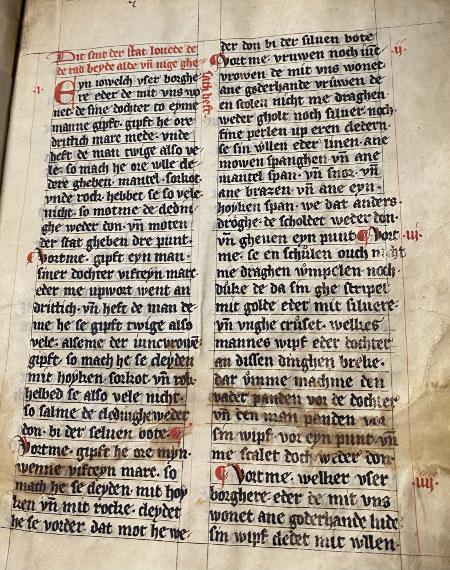 Dit sint der stat louede de
de rad beyde alde vn̄ nige ghe
sath heft·
·i·
Eyn iowelch vser borghe
re eder de mit vns wo
net· de sine dochter to eyme
manne gift· gift he ore
drittich marc mede· vnde
heft de man twige also ve
le· so mach he ore wlle cle
dere gheben· mantel· sorkot·
vnde rock· hebbet se so vele
nicht· so motme de dedin
ghe weder don· vn̄ moten
der stat gheben dre punt·
Vortme· gift eyn man·
siner dochter vifteyn marc
eder me vpwort went an
drittich· vn̄ heft de man de
me he se gift twige also
vele· alseme der iuncvrowe
gift· so mach he se cleyden
mit hoyken· sorkot· vn̄ rok
hebbed se also vele nicht·
so salme de dedinghe weder
don· bi der seluen bote·
Vortme· gift he ore myn
wenne vifteyn marc· so
mach he se cleyden· mit hoy
ken vn̄ mit rocke· cleydet
he se vorder· dat mot he we-
der don bi der seluen bote
·ij·
Vort me· vruwen noch iūc
vrowen de mit vns wonet·
ane goderhande vruwen de
en scolen nicht me draghen
weder gholt noch siluer noch
sine perlen up eren cledern·
se sin wllen eder linen· ane
mowen spanghen vn̄ ane
mantel span· vn̄ snor· vn̄
ane brazen· vn̄ ane eyn·
hoyken span· we dat anders
droghe· de scholdet weder don·
vn̄ gheuen eyn punt Vort
·iij·
me· se en schūlen ouch nicht
me draghen wimpelen noch
dūke de da sin ghe stripet
mit golde eder mit siluere·
vn̄ vnghe crūset· welkes
mannes wipf eder dochter
an dissen dinghen breke·
dar vmme machme den
vader panden vor de dochter
vn̄ den man panden vor
sin wipf· vor eyn punt vn̄
me scalet doch weder don·
·iiij·
Vortme· welker vser
borghere eder de mit vns
wonet ane goderhande lude·
sin wipf cledet mit wllen·